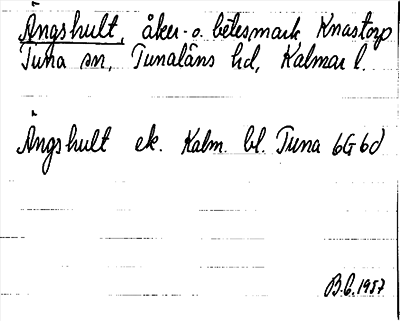 Ängshult, åker- o. betesmark Knastorp
Tuna sn, Tunaläns hd, Kalmar l.
Ängshult ek. Kalm. bl. Tuna 6G6d
B.C. 1957